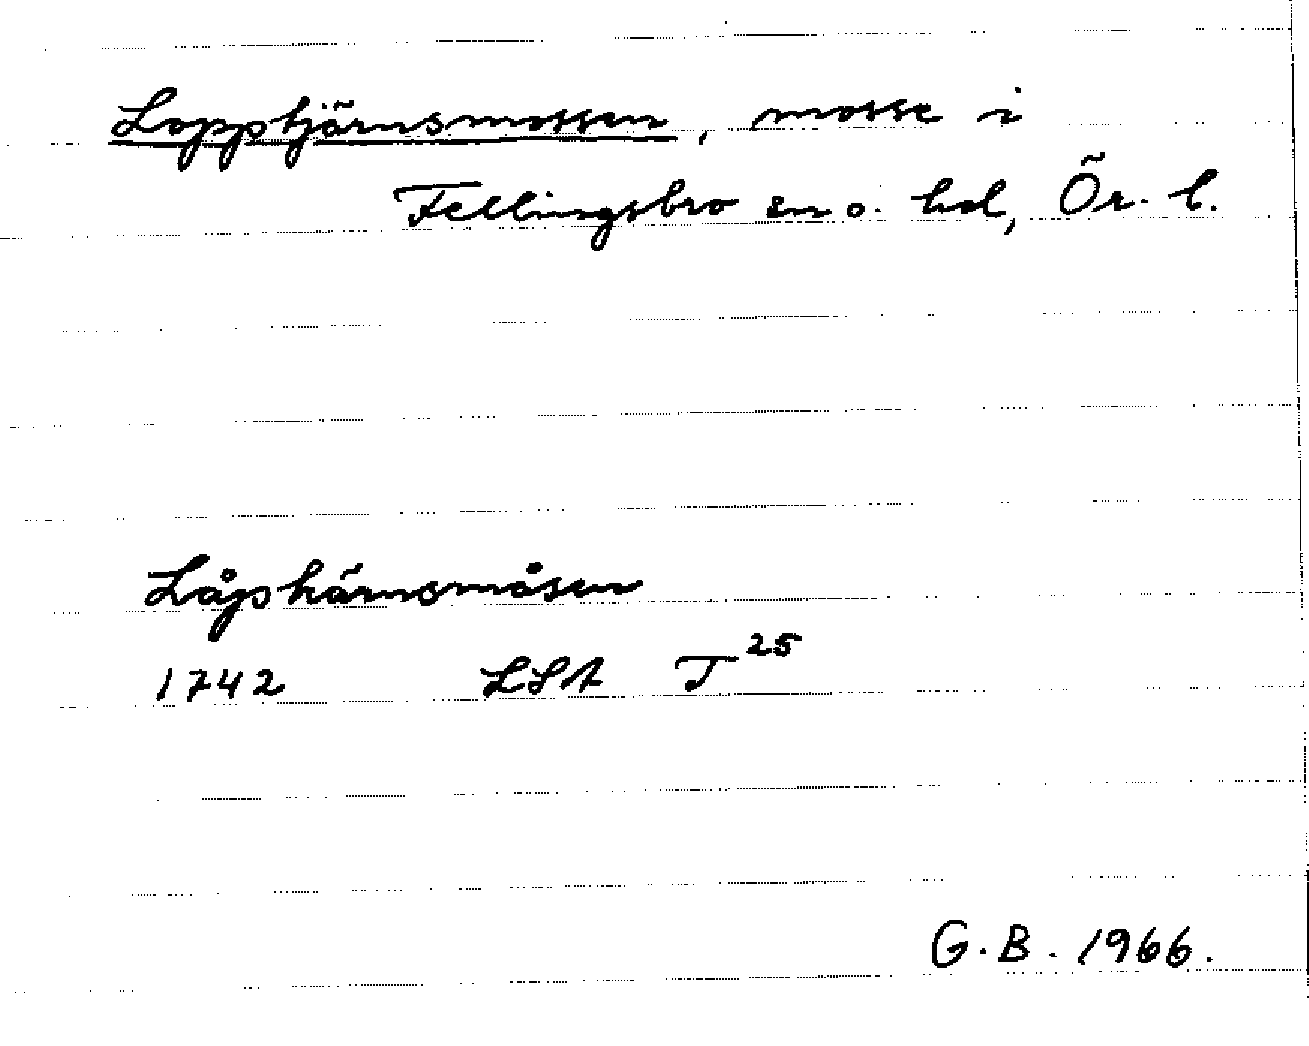 Lopptjärnsmossen, mosse i
Fellingsbro sn o. hd, Ör. l.
Låpkärnsmåsen
1742 LSA T 25
G. B. 1966.